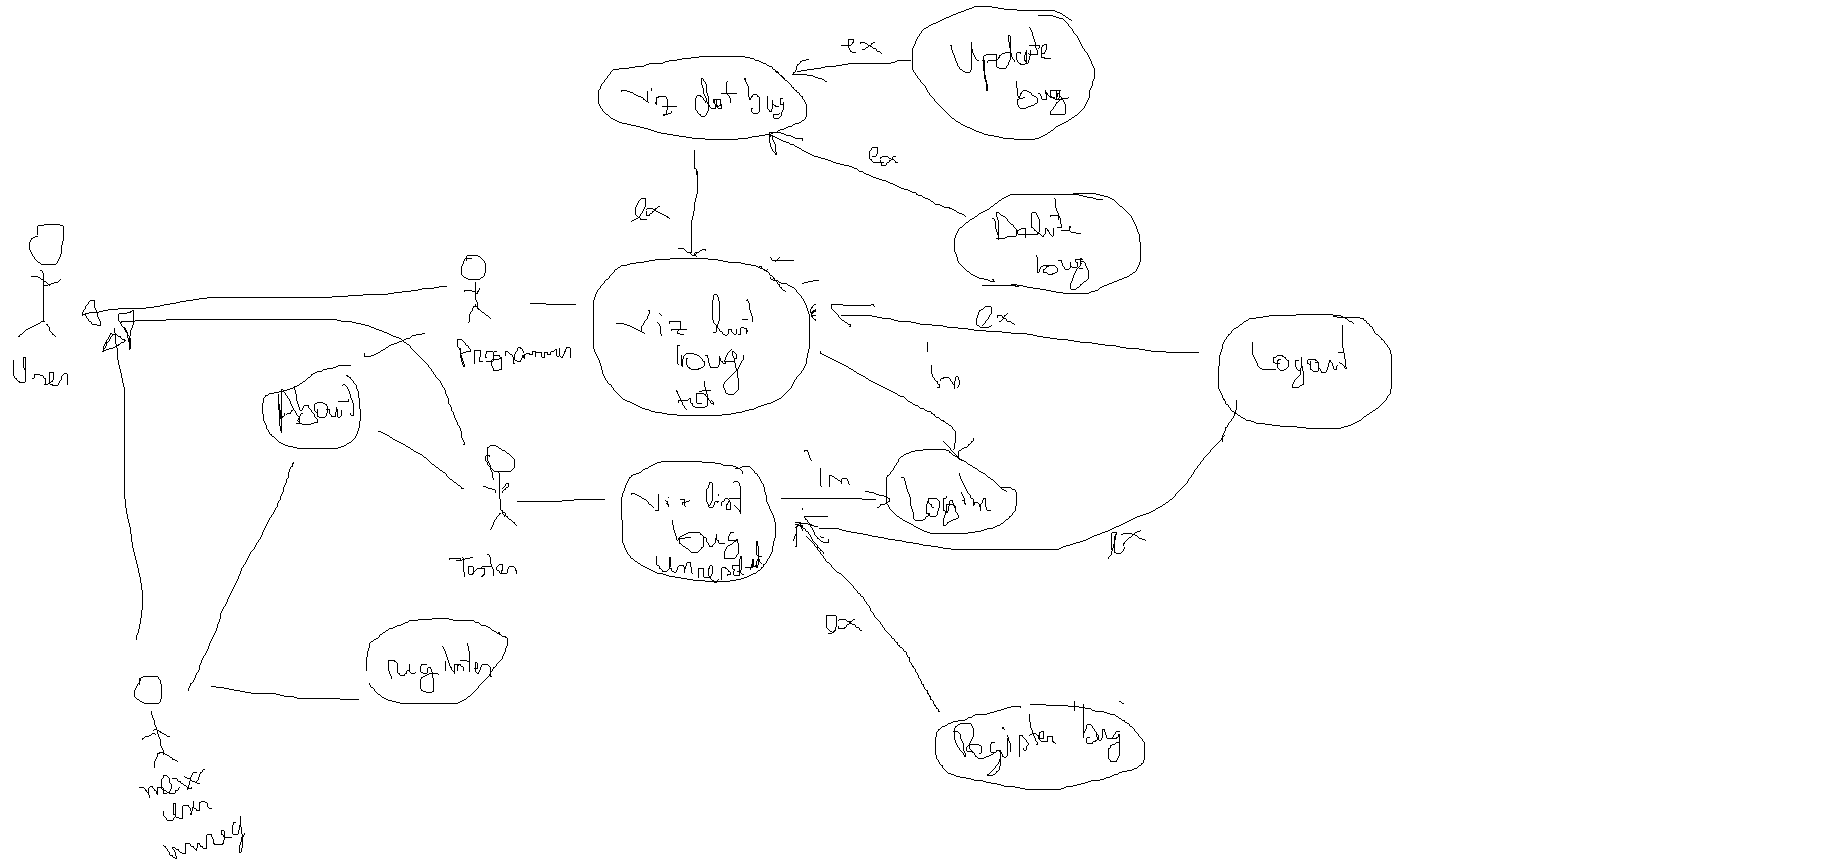 ex
Update
bug
viz det bug
ex
ex
Delete
bug
User
Programmer
viz list
bug
tot
ex
Logout
in
About
Tester
viz list
bug
in
Login
ex
ex
register
Register bug
unreg